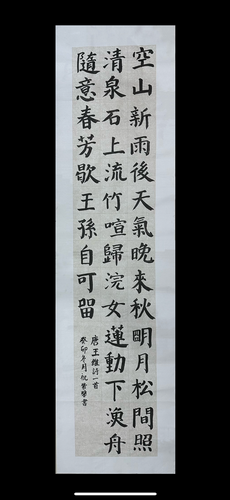 空山新雨後天氣晚來秋明月松間照
清泉石上流竹喧歸浣女蓮動下漁舟
隨意春芳歇王孫自可留
唐王維詩一首
癸卯 月 書